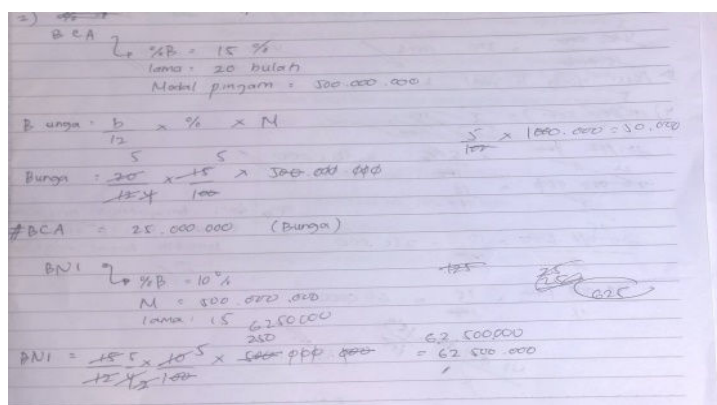 2)
BCA
%B = 15 %
lama = 20 bulan
Modal pinjam = 500.000.000
Bunga = b/12 × % × M
5/100 × 1000.000 = 50.000
5 5
Bunga = 20/12 4 × 15/100 × 500.000.000
#BCA = 25.000.000 (Bunga)
BNI
%B = 10%
125 25 250 625
M = 500.000.000
lama: 15
6250000
250 62.500000
BNI = 15 5/12 4 2 × 10 5/100 × 500 000 000 = 62 500.000